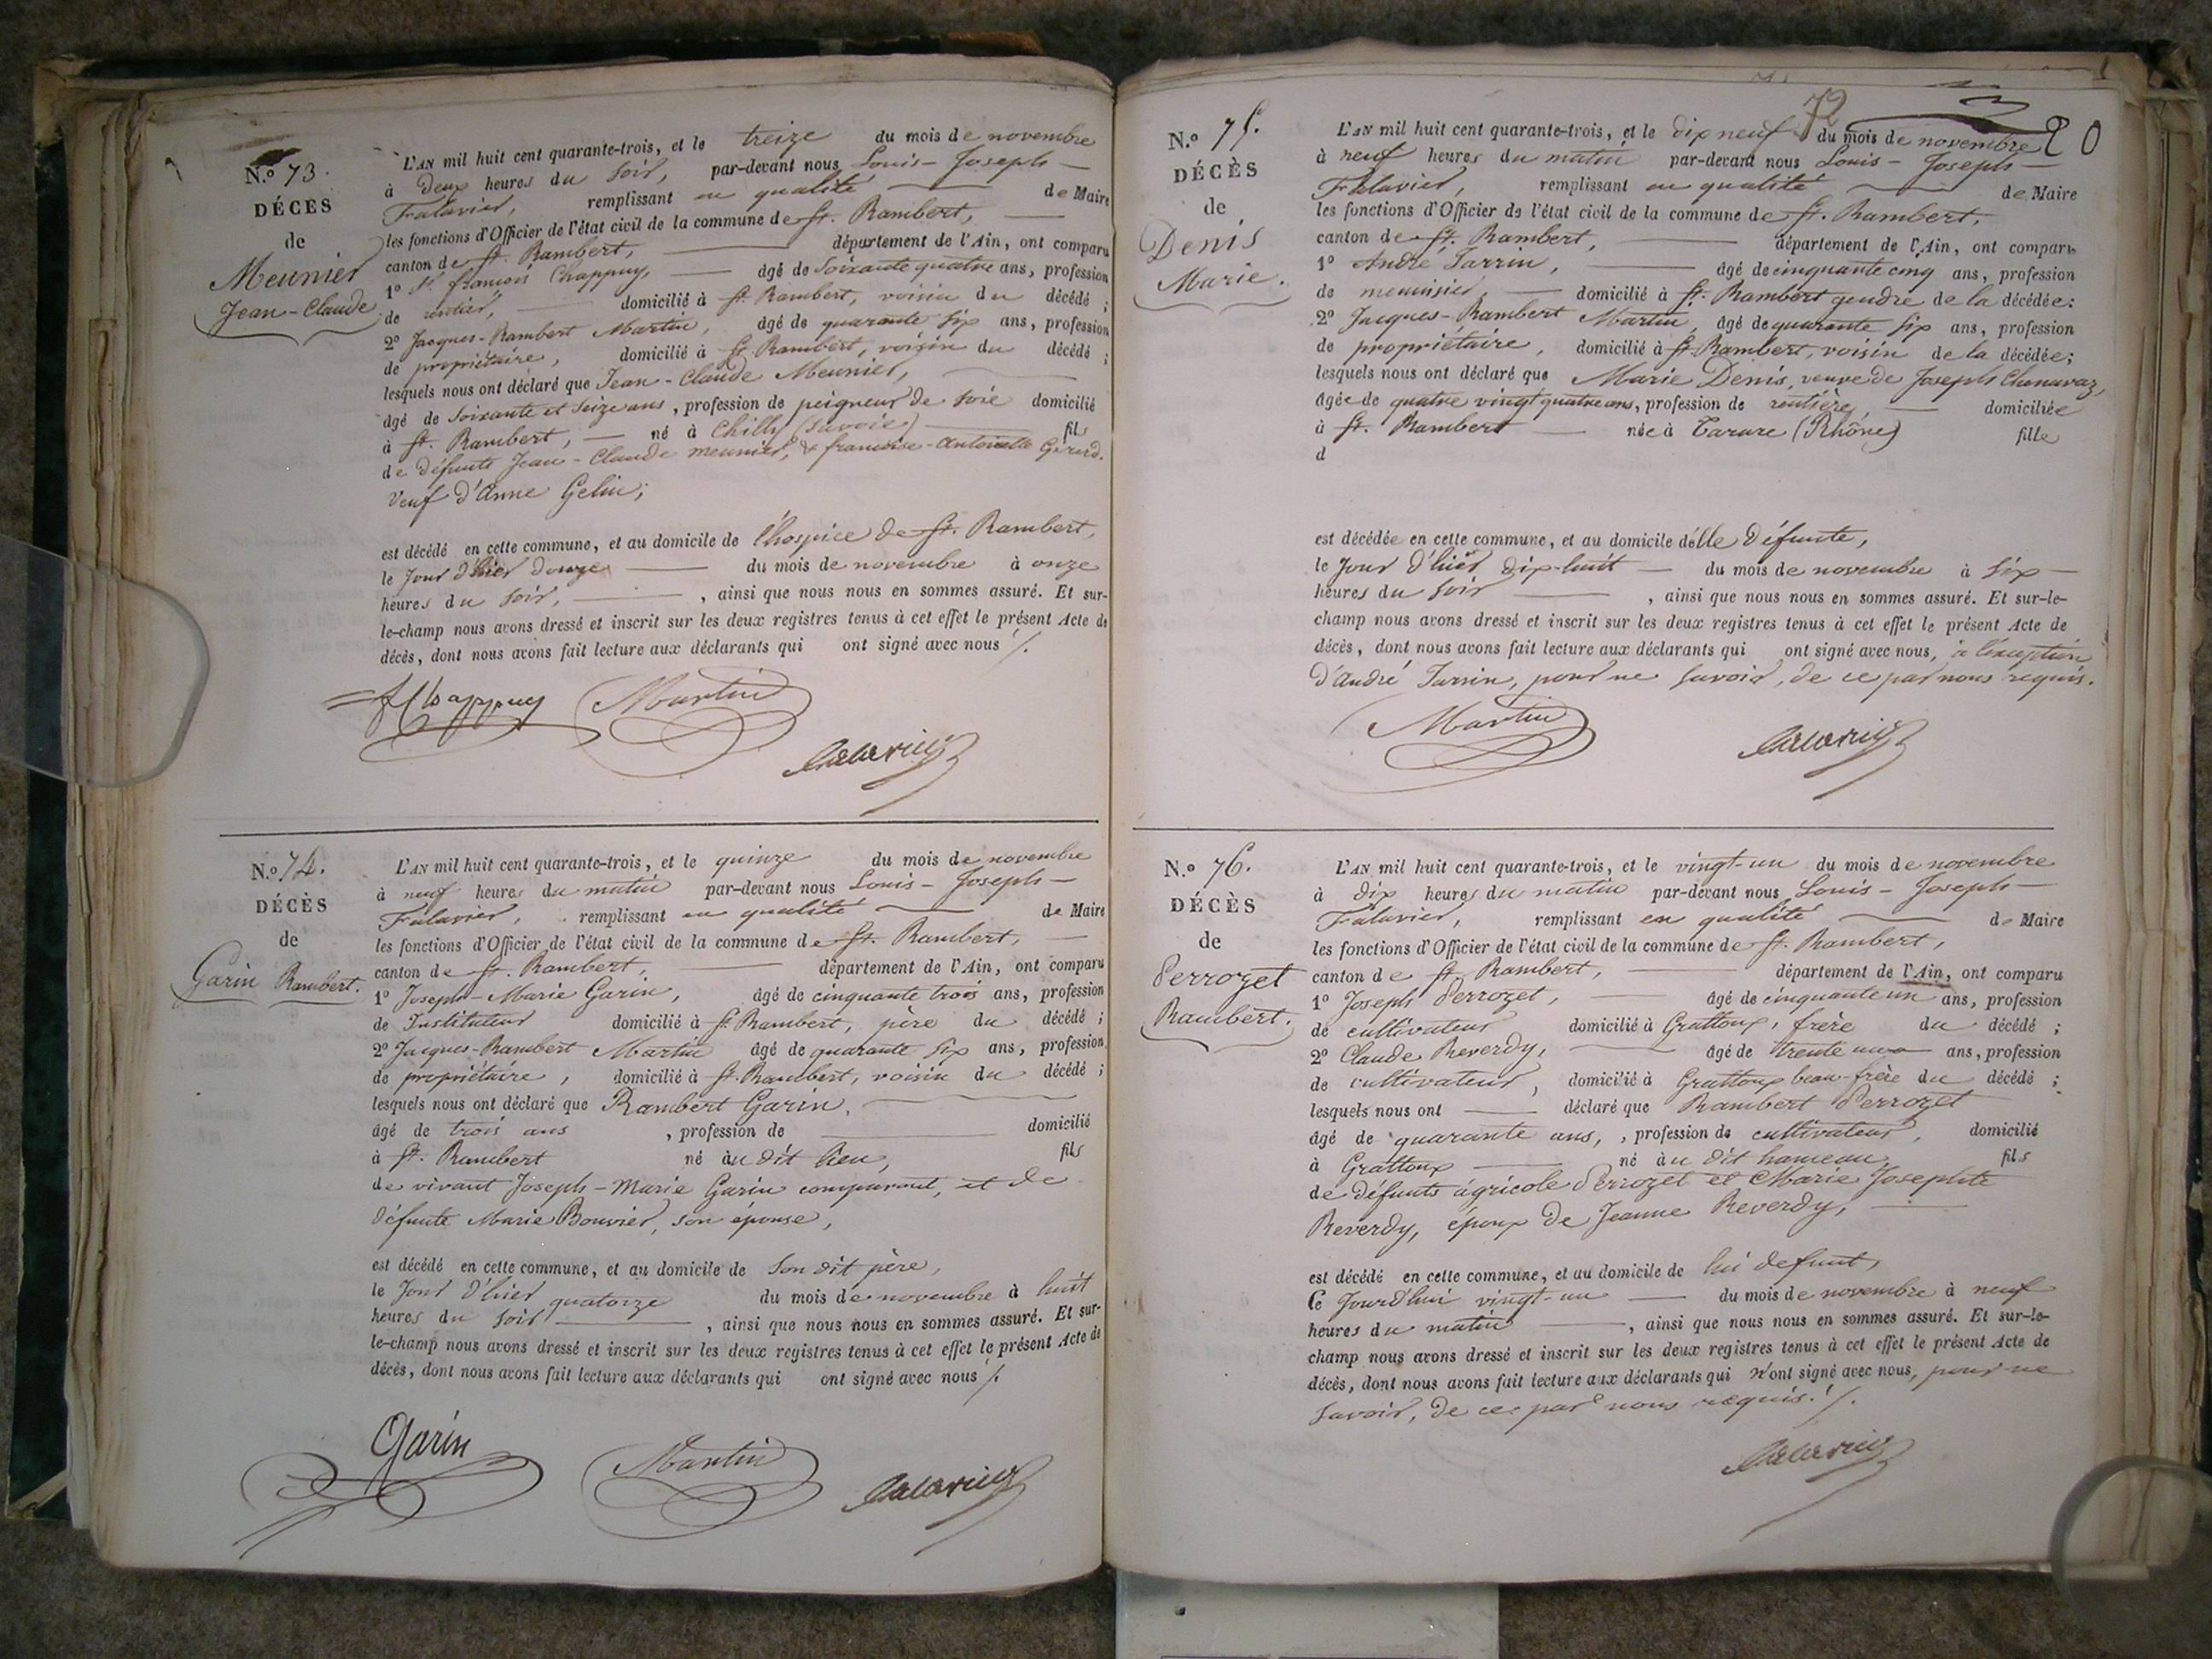 N.º 73.
DÉCÈS
de
Meunier
Jean-Claude
L'AN mil huit cent quarante-trois, et le treize du mois de novembre
à deux heures du soir, par-devant nous Louis-Joseph
Falavier, remplissant en qualité de Maire
les fonctions d'Officier de l'état civil de la commune de St. Rambert,
canton de St. Rambert, département de l'Ain, ont comparu
1º Sr. françois Chappuy, âgé de soixante quatre ans, profession
de rentier, domicilié à St. Rambert, voisin du décédé ;
2º Jacques-Rambert Martin, âgé de quarante six ans, profession
de propriétaire, domicilié à St. Rambert, voisin du décédé ;
lesquels nous ont déclaré que Jean-Claude Meunier,
âgé de soixante et seize ans, profession de peigneur de soie domicilié
à St. Rambert, né à Chilly (Savoie) fils
de défunts Jean-Claude meunier, & francoise-antoinette Girerd.
Veuf d'Anne Gelin;
est décédé en cette commune, et au domicile de l'hospice de St. Rambert,
le jour d'hier douze du mois de novembre à onze
heures du soir, , ainsi que nous nous en sommes assuré. Et sur-
le-champ nous avons dressé et inscrit sur les deux registres tenus à cet effet le présent Acte de
décès, dont nous avons fait lecture aux déclarants qui ont signé avec nous /.
fChappuy Martin
Falavier
N.º 74.
DÉCÈS
de
Garin Rambert.
L'AN mil huit cent quarante-trois, et le quinze du mois de novembre
à neuf heures du matin par-devant nous Louis-Joseph
Falavier, remplissant en qualité de Maire
les fonctions d'Officier de l'état civil de la commune de St. Rambert,
canton de St. Rambert, département de l'Ain, ont comparu
1º Joseph-Marie Garin, âgé de cinquante trois ans, profession
de Instituteur domicilié à St. Rambert, père du décédé ;
2º Jacques-Rambert Martin âgé de quarante six ans, profession
de propriétaire, domicilié à St. Rambert, voisin du décédé ;
lesquels nous ont déclaré que Rambert Garin,
âgé de trois ans , profession de domicilié
à St. Rambert né au dit lieu, fils
de vivant Joseph-Marie Garin comparant, et de
défunte Marie Bouvier, son épouse,
est décédé en cette commune, et au domicile de son dit père,
le jour d'hier quatorze du mois de novembre à huit
heures du soir , ainsi que nous nous en sommes assuré. Et sur-
le-champ nous avons dressé et inscrit sur les deux registres tenus à cet effet le présent Acte de
décès, dont nous avons fait lecture aux déclarants qui ont signé avec nous /.
Garin Martin Falavier
72
20
N.º 75.
DÉCÈS
de
Denis
Marie.
L'AN mil huit cent quarante-trois, et le dix neuf du mois de novembre
à neuf heures du matin par-devant nous Louis-Joseph
Falavier, remplissant en qualité de Maire
les fonctions d'Officier de l'état civil de la commune de St. Rambert,
canton de St. Rambert, département de l'Ain, ont comparu
1º André Jarrin, âgé de cinquante cinq ans, profession
de menuisier, domicilié à St. Rambert gendre de la décédée :
2º Jacques-Rambert Martin, âgé de quarante six ans, profession
de propriétaire, domicilié à St. Rambert, voisin de la décédée ;
lesquels nous ont déclaré que Marie Denis, veuve de Joseph Chenavaz,
âgée de quatre vingt quatre ans, profession de rentière, domiciliée
à St. Rambert née à Tarare (Rhône) fille
d
est décédée en cette commune, et au domicile d'elle défunte,
le jour d'hier dix-huit du mois de novembre à six
heures du soir , ainsi que nous nous en sommes assuré. Et sur-le-
champ nous avons dressé et inscrit sur les deux registres tenus à cet effet le présent Acte de
décès, dont nous avons fait lecture aux déclarants qui ont signé avec nous, à l'exception
d'andré Jarrin, pour ne savoir, de ce par nous requis.
Martin Falavier
N.º 76.
DÉCÈS
de
Perrozet
Rambert.
L'AN mil huit cent quarante-trois, et le vingt-un du mois de novembre
à dix heures du matin par-devant nous Louis-Joseph
Falavier, remplissant en qualité de Maire
les fonctions d'Officier de l'état civil de la commune de St. Rambert,
canton de St. Rambert, département de l'Ain, ont comparu
1º Joseph Perrozet, âgé de cinquante un ans, profession
de cultivateur domicilié à Grattoux, frère du décédé ;
2º Claude Reverdy, âgé de trente un ans, profession
de cultivateur, domicilié à Grattoux beau-frère du décédé ;
lesquels nous ont déclaré que Rambert Perrozet
âgé de quarante ans, , profession de cultivateur, domicilié
à Grattoux né au dit hameau, fils
de défunts agricole Perrozet et Marie Josephte
Reverdy, époux de Jeanne Reverdy,
est décédé en cette commune, et au domicile de lui defunt,
Ce Jourd'hui vingt-un du mois de novembre à neuf
heures du matin , ainsi que nous nous en sommes assuré. Et sur-le-
champ nous avons dressé et inscrit sur les deux registres tenus à cet effet le présent Acte de
décès, dont nous avons fait lecture aux déclarants qui n'ont signé avec nous, pour ne
savoir, de ce par nous requis. /.
Falavier